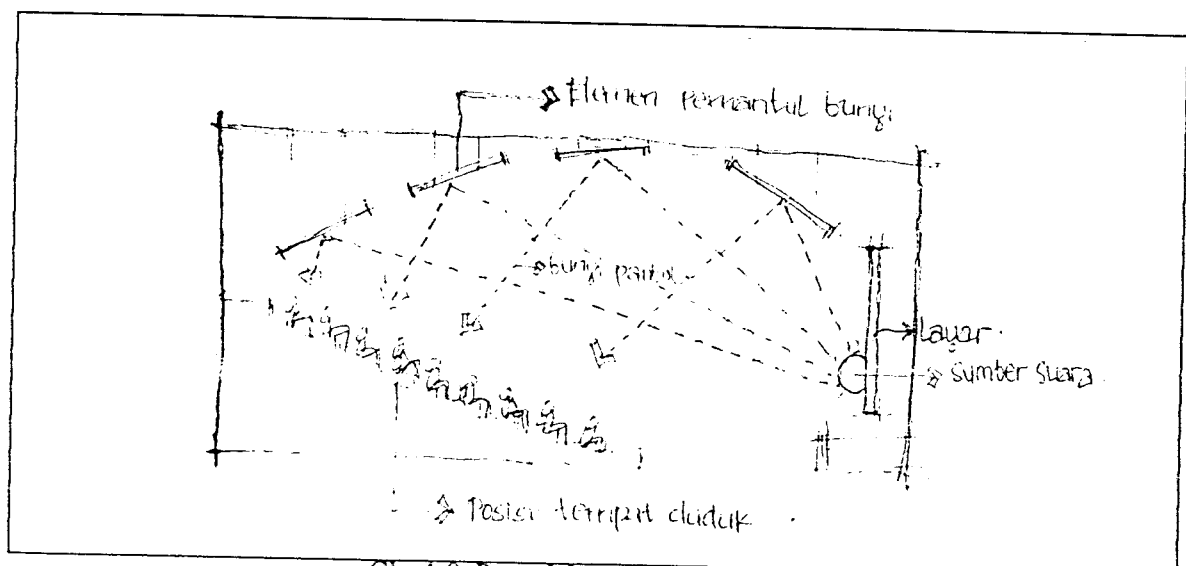 Elemen Pemantul bunyi
bunyi pantul
Layar.
Sumber Suara.
Posisi tempat duduk